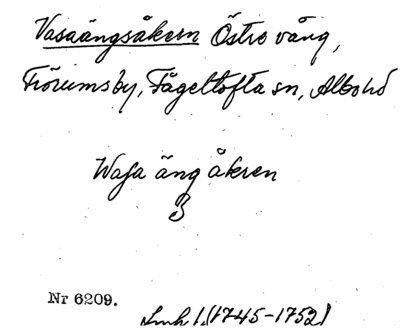 Vasaängsåkern Östre vång,
Frörumsby, Fågeltofta sn, Albo hd
Wasa äng åkren
3
Nr 6209.
Lmh 1.(1745-1752)